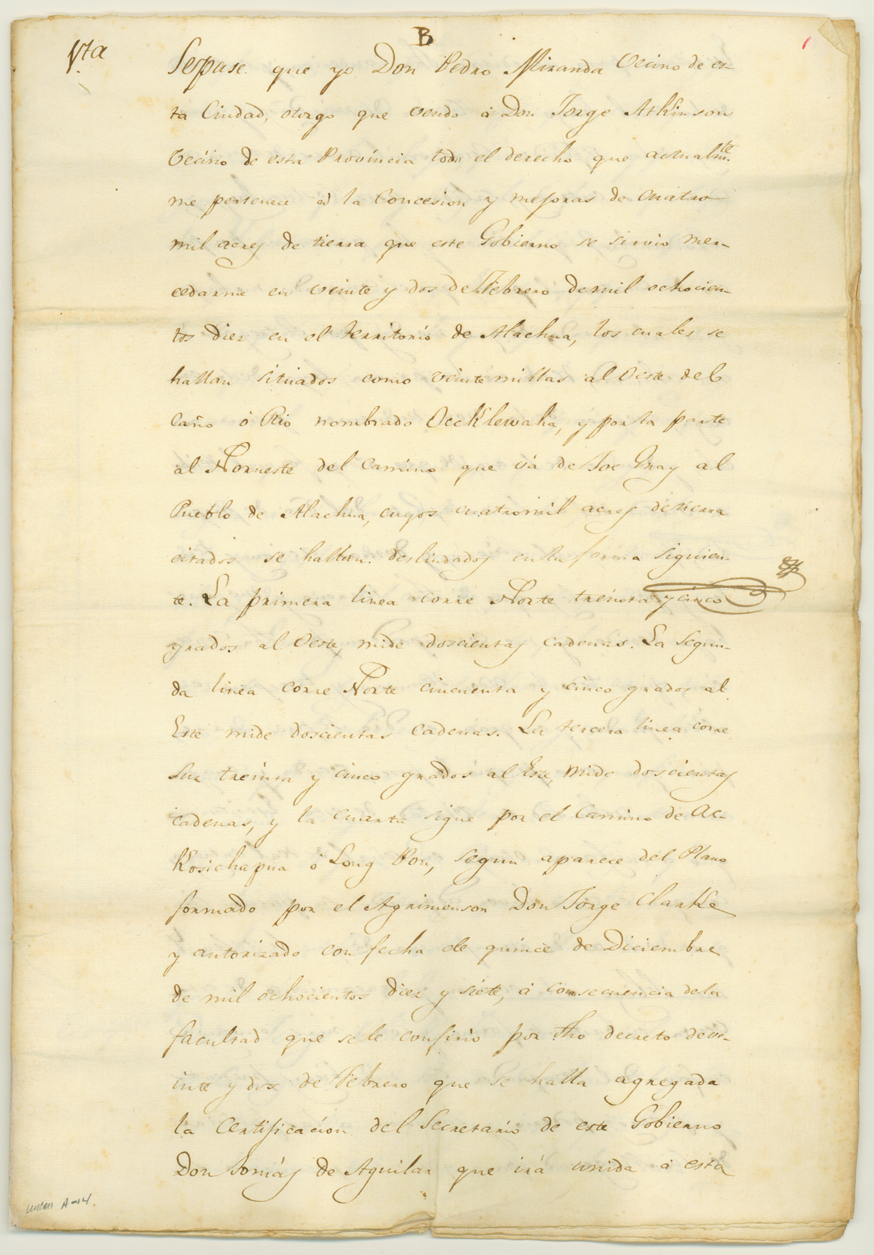 B
Vta
Sespase que yo Don Pedro Miranda Vecino de es-
ta Ciudad, otorgo que vendo á Don Jorge Atkinson
Vecino de esta Provincia todo el derecho que actualmte
me pertenece á la Concesion y mejoras de cuatro
mil acres de tierra que este Gobierno se sirvió mer-
cedarme en veinte y dos de Febrero de mil ochocien-
tos diez en el territorio de Alachua, los cuales se
hallan situados como veinte millas al Oeste del
Caño ó Rio nombrado Occklewaha, y por la parte
al Norueste del camino que vá de Joe Gray al
Pueblo de Alachua, cuyos cuatromil acres de tierra
citados se hallan deslindados en la forma siguien-
te. La primera linea corre Norte treinta y cinco
grados al Oeste, mide doscientas cadenas. La segun-
da linea corre Norte cincuenta y cinco grados al
Este mide doscientas cadenas. La tercera linea corre
Sur treinta y cinco grados al Este, mide doscientas
cadenas, y la cuarta sigue por el Camino de Ac-
Kosichapua ó Long Pon, segun aparece del Plano
formado por el Agrimensor Don Jorge Clarke
y autorizado con fecha de quince de Diciembre
de mil ochocientos diez y siete, á consecuencia de la
facultad que se le confirió por dho decreto de ve-
inte y dos de Febrero que se halla agregada
la certificacion del Secretario de este Gobierno
Don Tomás de Aguilar que irá unida á esta
A-14.